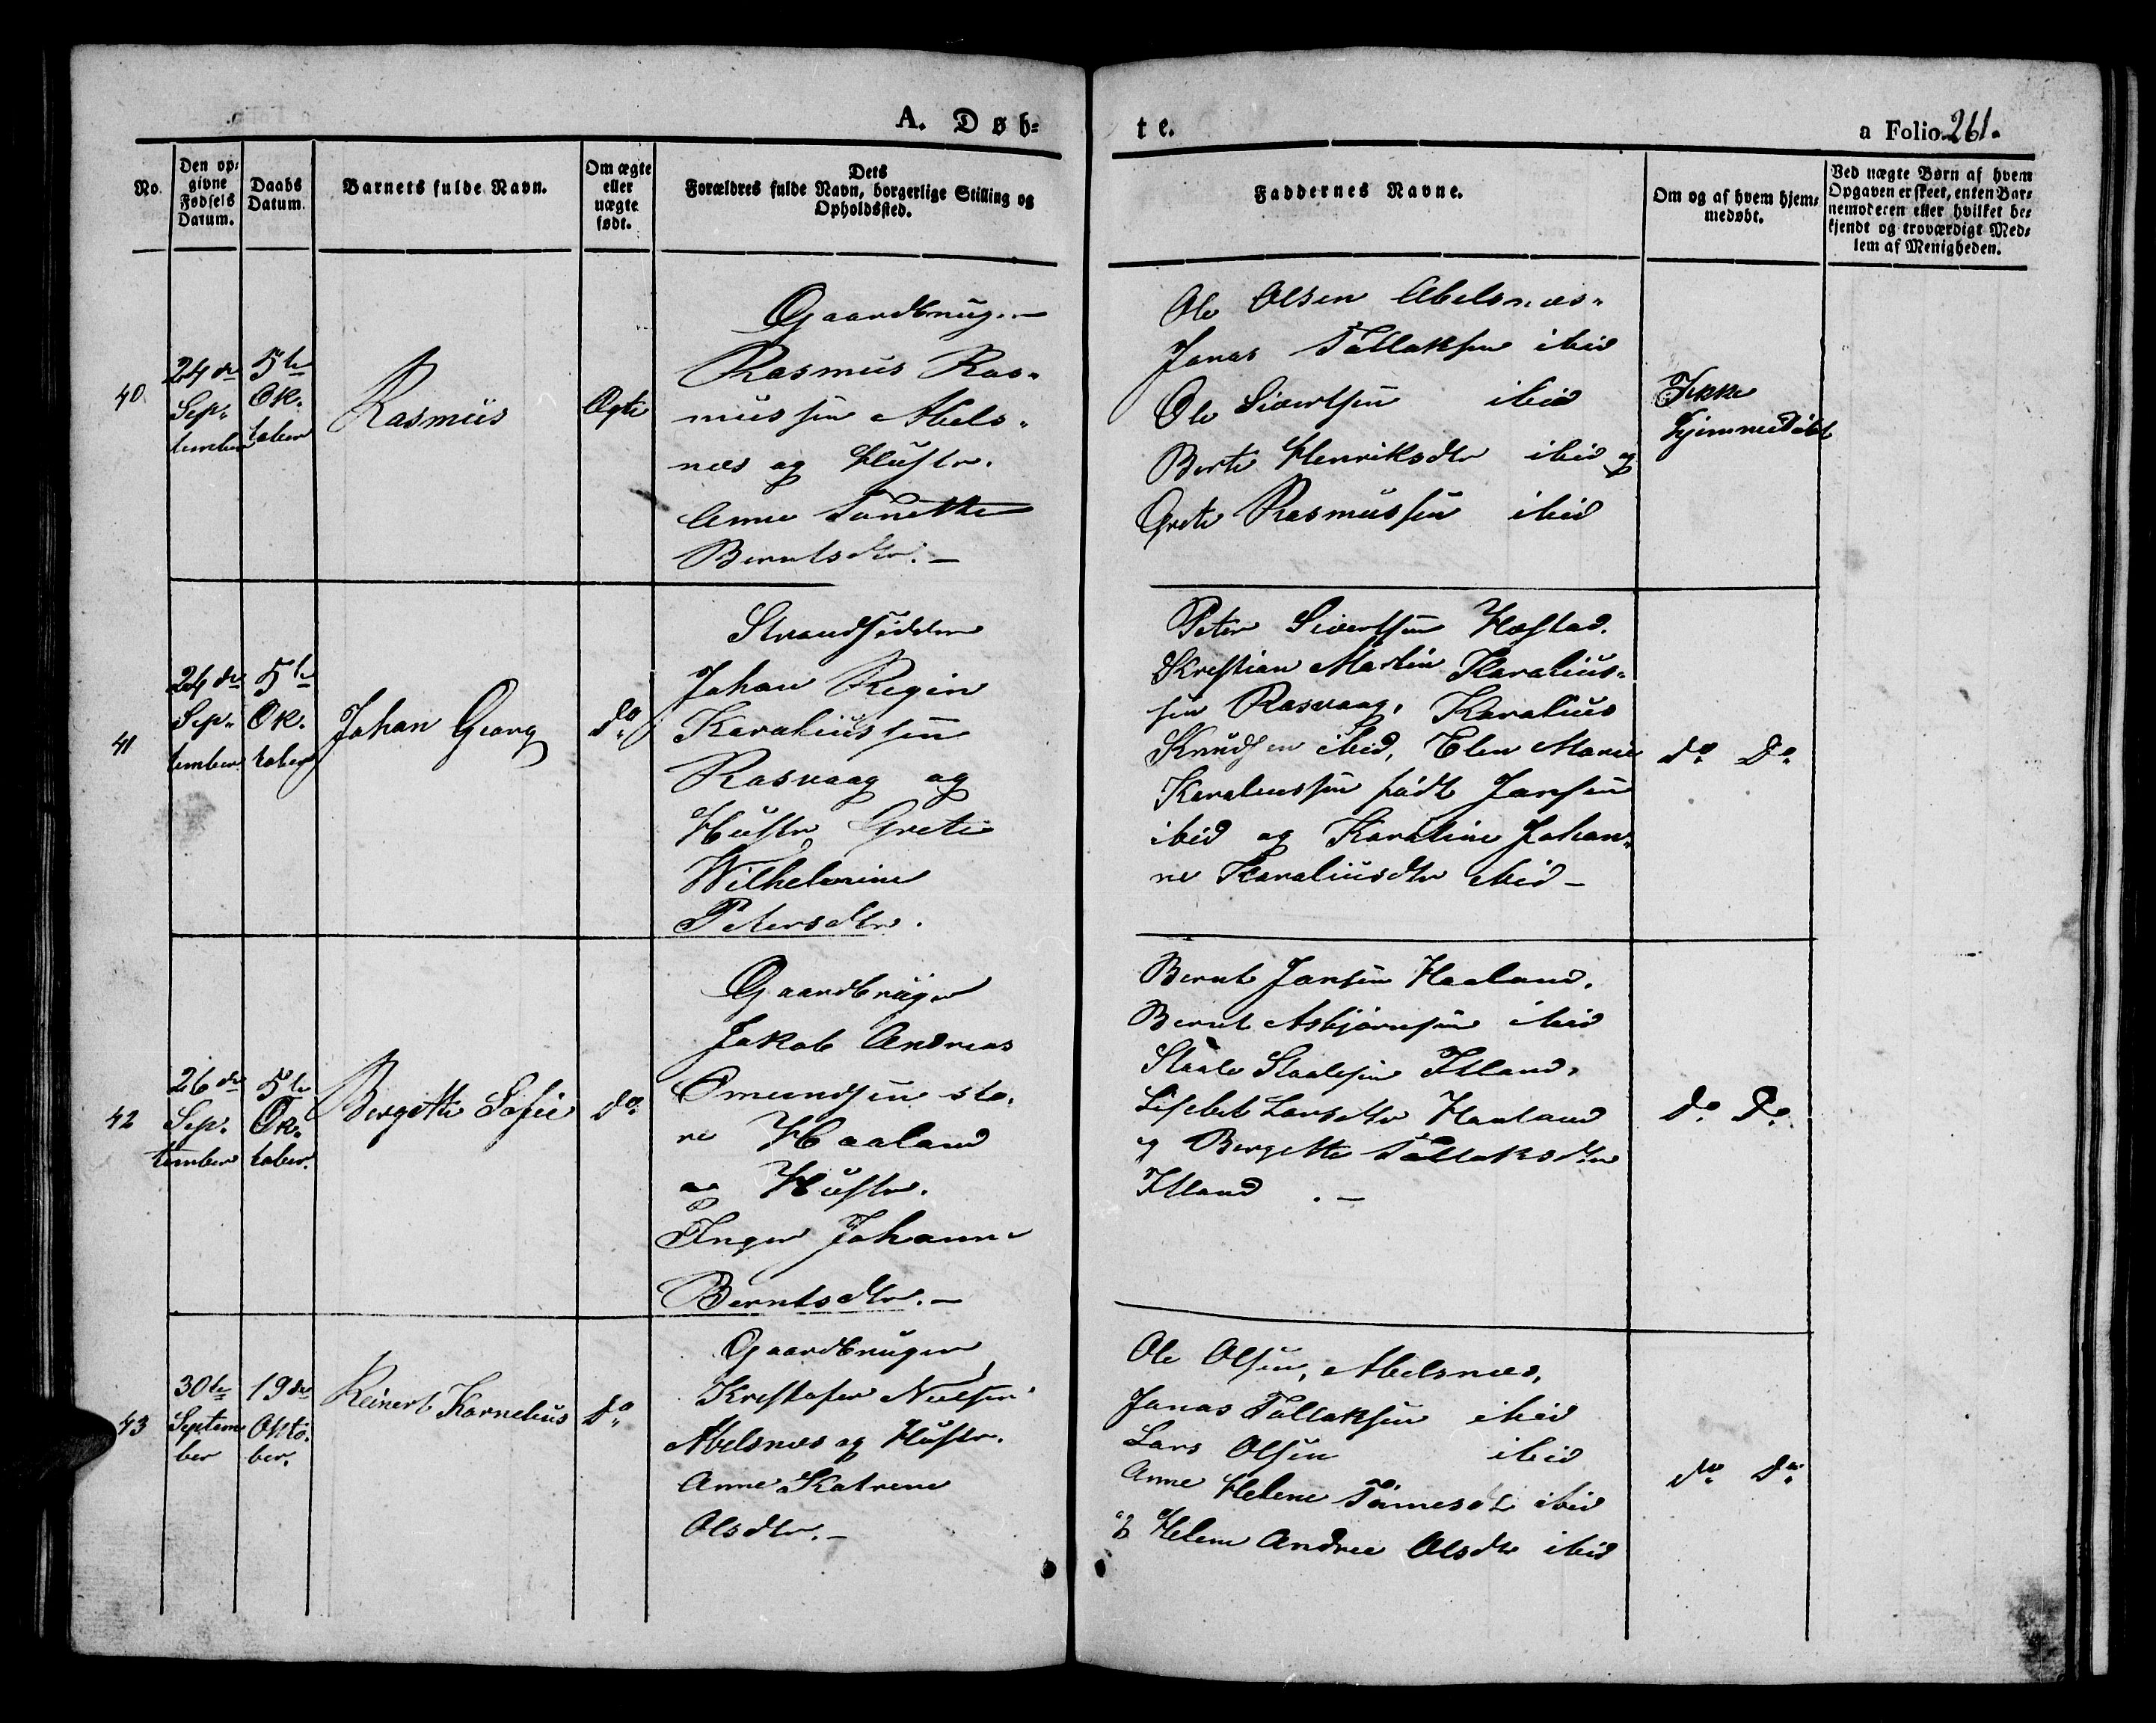 A. Døb-
te.
a Folio 261.
No.
Den op-
givne
Fødsels
Datum.
Daabs
Datum.
Barnets fulde Navn.
Om ægte
eller
uægte
født.
Dets
Forældres fulde Navn, borgerlige Stilling og
Opholdssted.
Faddernes Navne.
Om og af hvem hjem-
medøbt.
Ved uægte Børn af hvem
Opgaven er skeet, enten Bar-
nemoderen eller hvilket be-
kjendt og troværdigt Med-
lem af Menigheden.
40
24de
Sep-
tember
5te
Ok-
tober
Rasmus
Ægte
Gaardbruger
Rasmus Ras-
mussen Abels-
næs og Hustr.
Anne Tonette
Berntsdtr.
Ole Olsen Abelsnæs.
Jonas Tallaksen ibid
Ole Sivertsen ibid
Berte Henriksdtr ibid og
Grete Rasmussen ibid
Ikke
hjemmedøbt
41
24de
Sep-
tember
5te
Ok-
tober
Johan Georg
do
Strandsidder
Johan Regin
Karaliussen
Rasvaag og
Hustr Grete
Wilhelmine
Petersdtr.
Peter Sivertsen Hæstad.
Kristian Martin Karalius-
sen Rasvaag, Karalius
Knudsen ibid, Elen Marie
Karaliussen født Jansen
ibid og Karoline Johan-
ne Karaliusdtr ibid -
do Do
42
26de
Sep-
tember
5te
Ok-
tober.
Bergette Sofie
do
Gaardbruger
Jakob Andreas
Omundsen sto-
re Haaland
og Hustr.
Inger Johanne
Berntsdtr. -
Bernt Jansen Haaland.
Bernt Asbjørnsen ibid
Staale Staalesen Itland,
Lisebet Larsdtr Haaland
og Bergette Tallaksdtr
Itland . -
do Do
43
30te
Septem
ber
19de
Okto-
ber.
Reinert Kornelius
do
Gaardbruger
Kristofer Nielsen
Abelsnæs og Hustr.
Anne Katrine
Olsdtr. -
Ole Olsen, Abelsnæs,
Jonas Tallaksen ibid
Lars Olsen ibid
Anne Helene Tønnesdt ibid
og Helene Andrea Olsdtr ibid
do do